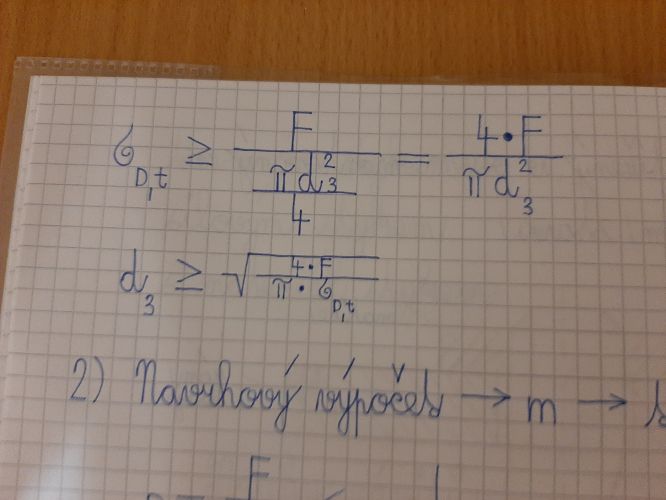 σ_D,t ≥ F / (πd₃² / 4) = 4·F / πd₃²
d₃ ≥ √(4·F / π·σ_D,t)
2) Navrhový výpočet → m →
F